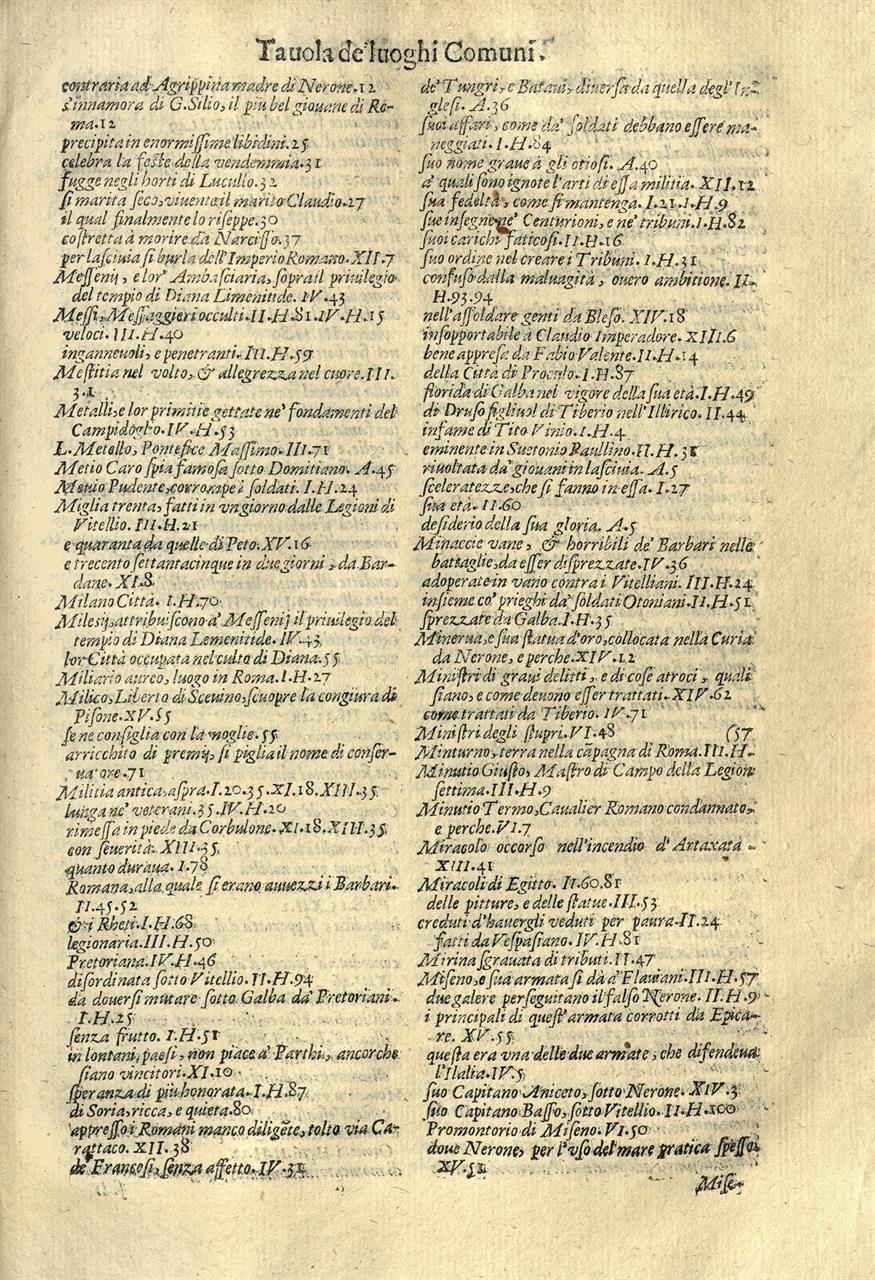 Tauola de' luoghi Comuni.
contraria ad Agrippina madre di Nerone.12
s'innamora di G.Silio, il piu bel giouane di Ro-
ma.12
precipita in enormissime libidini.25
celebra la feste della vendemmia.31
fugge negli horti di Lucullo.32
si marita seco, viuente il marito Claudio.27
il qual finalmente lo riseppe.30
costretta à morire da Narcisso.37
per lasciuia si burla dell'Imperio Romano.XII.7
Messenij, e lor' Ambasciaria, sopra il priuilegio
del tempio di Diana Limenitide. IV.43
Messi, Messaggieri occulti.II.H.81.IV.H.15
veloci. III.H.40
inganneuoli, e penetranti.III.H.59
Mestitia nel volto, & allegrezza nel cuore.III.
3.1
Metalli, e lor primitie gettate ne' fondamenti del
Campidoglio. IV.H.53
L. Metello, Pontefice Massimo. III.71
Metio Caro spia famosa sotto Domitiano. A.45
Meuio Pudente, corrompe i soldati. I.H.24
Miglia trenta, fatti in vn giorno dalle Legioni di
Vitellio. III.H.21
e quaranta da quelle di Peto.XV.16
e trecento settantacinque in due giorni, da Bar-
dane. XI.8
Milano Città. I.H.70
Milesij, attribuiscono a' Messenij il priuilegio del
tempio di Diana Lemenitide. IV.43
lor Città occupata nel culto di Diana.55
Miliario aureo, luogo in Roma. I.H.27
Milico, Liberto di Sceuino, scuopre la congiura di
Pisone.XV.55
se ne consiglia con la moglie.55
arricchito di premij, si piglia il nome di conser-
uatore.71
Militia antica, aspra.I.20.35.XI.18.XIII.35
lunga ne' veterani.35.IV.H.20
rimessa in piede da Corbulone. XI.18.XIII.35
con seuerità. XIII.35
quanto duraua. 1.78
Romana, alla quale si erano auuezzi i Barbari.
II.45.52
& i Rheti.I.H.68
legionaria.III.H.50
Pretoriana.IV.H.46
disordinata sotto Vitellio.II.H.94
da douersi mutare sotto Galba da' Pretoriani.
I.H.25
senza frutto. I.H.51
in lontani paesi, non piace a' Parthi, ancorche
siano vincitori.XI.10
speranza di piu honorata.I.H.87
di Soria, ricca, e quieta.80
appresso i Romani manco diligẽte, tolto via Ca-
rattaco. XII.38
de' Francesi, senza affetto.IV.31
de' Tungri, e Bataui, diuersa da quella degl' In-
glesi. A.36
suoi affari, come da' soldati debbano essere ma-
neggiati. I.H.84
suo nome graue à gli otiosi. A.40
a' quali sono ignote l'arti di essa militia. XII.12
sua fedeltà, come si mantenga. I.21.I.H.9
sue insegne ne' Centurioni, e ne' tribuni.I.H.82
suoi carichi faticosi.II.H.16
suo ordine nel creare i Tribuni. I.H.31
confuso dalla maluagità, ouero ambitione. II.
H.93.94
nell'assoldare genti da Bleso. XIV.18
insopportabile à Claudio Imperadore. XIII.6
bene appresa da Fabio Valente.II.H.14
della Città di Proculo.I.H.87
florida di Galba nel vigore della sua età.I.H.49
di Druso figliuol di Tiberio nell'Illirico. II.44
infame di Tito Vinio.I.H.4
eminente in Suetonio Paullino.II.H.31
riuoltata da' giouani in lasciuia. A.5
sceleratezze, che si fanno in essa.I.27
sua età. II.60
desiderio della sua gloria. A.5
Minaccie vane, & horribili de' Barbari nelle
battaglie, da esser disprezzate.IV.36
adoperate in vano contra i Vitelliani. III.H.24
insieme co' prieghi da' soldati Otoniani.II.H.51
sprezzate da Galba.I.H.35
Minerua, e sua statua d'oro, collocata nella Curia
da Nerone, e perche.XIV.12
Ministri di graui delitti, e di cose atroci, quali
siano, e come deuono esser trattati. XIV.62
come trattati da Tiberio. IV.71
Ministri degli stupri.VI.48 (57
Minturno, terra nella cãpagna di Roma.III.H.
Minutio Giusto, Mastro di Campo della Legion
settima.III.H.9
Minutio Termo, Caualier Romano condannato,
e perche.VI.7
Miracolo occorso nell'incendio d'Artaxata.
XIII.41
Miracoli di Egitto. II.60.81
delle pitture, e delle statue.III.53
creduti d'hauergli veduti per paura.II.24
fatti da Vespasiano. IV.H.81
Mirina sgrauata di tributi.II.47
Miseno, e sua armata si dà a' Flauiani.III.H.57
due galere perseguitano il falso Nerone. II.H.9
i principali di quest'armata corrotti da Epica-
re. XV.55
questa era vna delle due armate, che difendeua
l'Italia. IV.5
suo Capitano Aniceto, sotto Nerone. XIV.3
suo Capitano Basso, sotto Vitellio. II.H.100
Promontorio di Miseno. VI.50
doue Nerone, per l'vso del mare pratica spesso
XV.51
Mise-